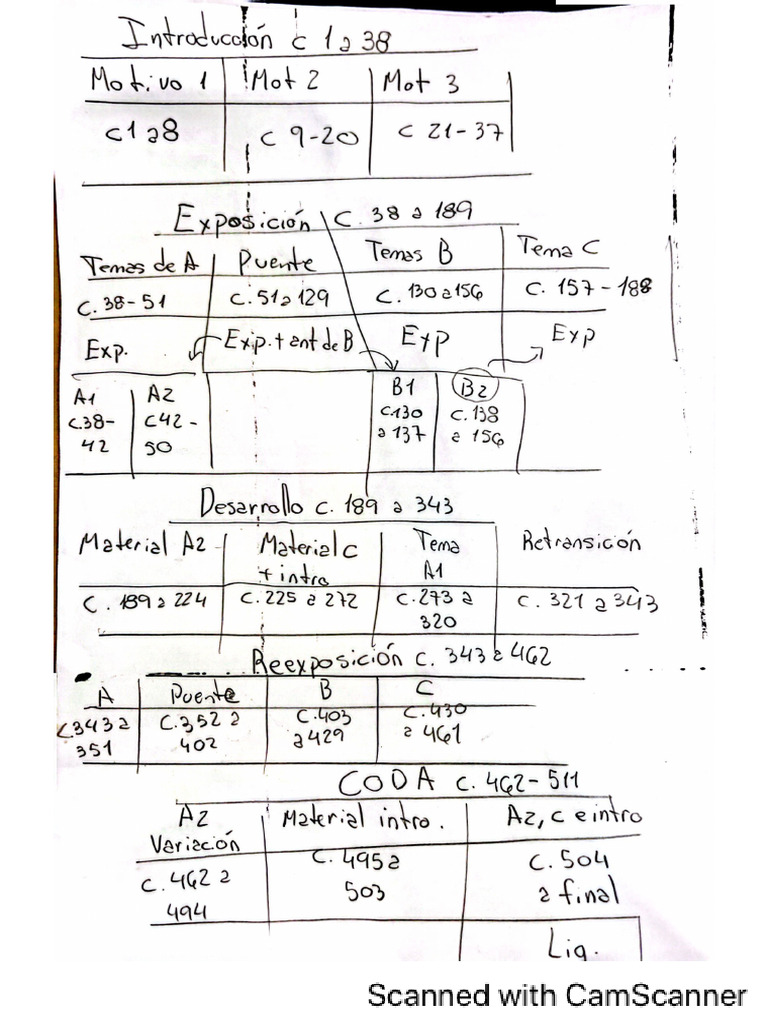 Introducción c 1 a 38
Motivo 1 Mot 2 Mot 3
c 1 a 8 c 9-20 c 21-37
Exposición c. 38 a 189
Temas de A Puente Temas B Tema C
c. 38-51 c. 51 a 129 c. 130 a 156 c. 157-188
Exp. Exp. + ant de B Exp Exp
A1 A2 B1 B2
c.38- c42- c130 c. 138
42 50 a 137 a 156
Desarrollo c. 189 a 343
Material A2 Material C Tema Retransición
+ intro A1
c. 189 a 224 c. 225 a 272 c. 273 a c. 321 a 343
320
Reexposición c. 343 a 462
A Puente B C
c.343 a c.352 a c.403 c.430
351 402 a 429 a 461
CODA c. 462-511
A2 Material intro. A2, C e intro
Variación
c. 462 a c. 495 a c. 504
494 503 a final
Liq.
Scanned with CamScanner